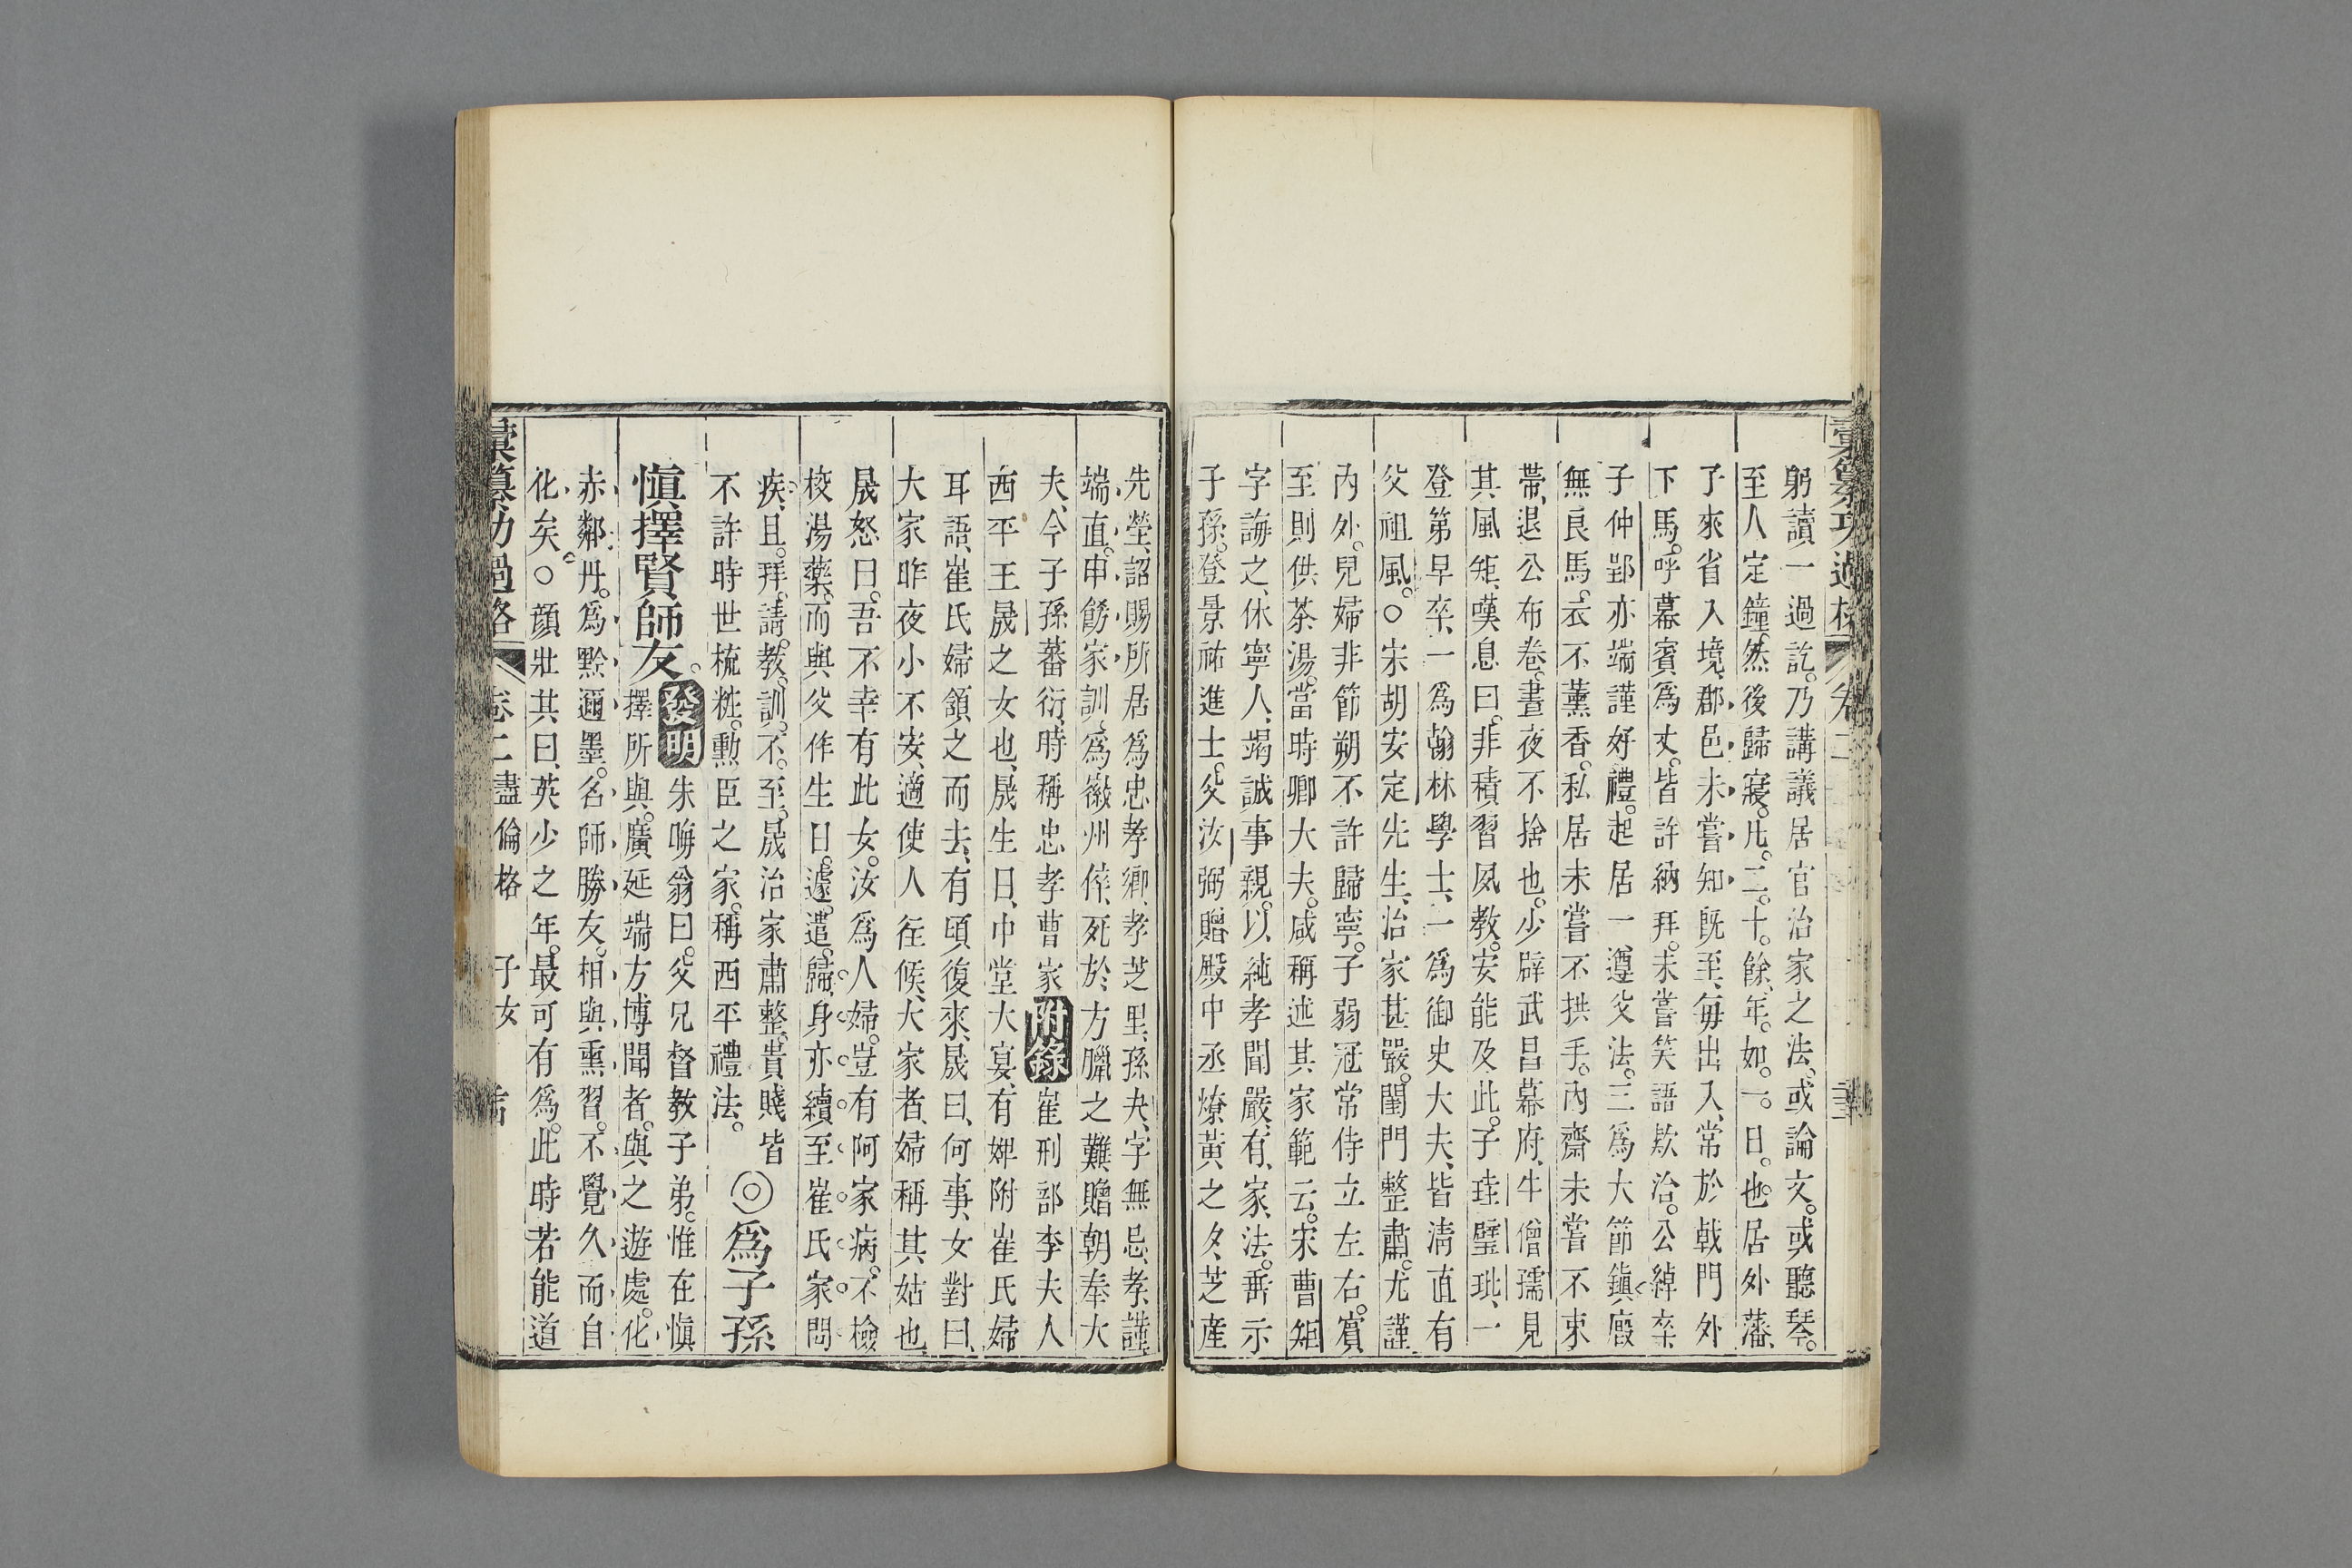 彙纂功過格 卷二
躬讀一過訖。乃講議居官治家之法。或論文。或聽琴。
至人定鐘。然後歸寢。凡二十餘年。如一日也。居外藩、
子來省入境、郡邑未嘗知既至、每出入、常於戟門外
下馬。呼幕賓爲丈。皆許納拜。未嘗笑語款洽。公綽卒
子仲郢亦端謹好禮。起居一遵父法。三爲大節鎮。廄
無良馬。衣不薰香。私居未嘗不拱手。內齋未嘗不束
帶、退公布卷。晝夜不捨也。少辟武昌幕府、牛僧孺見
其風矩、嘆息曰。非積習夙教。安能及此。子珪璧玭、一
登第早卒、一爲翰林學士、一爲御史大夫、皆淸直有
父祖風。○宋胡安定先生、治家甚嚴。閨門整肅。尤謹
內外。兒婦非節朔不許歸寧。子弱冠常侍立左右。賓
至則供茶湯。當時卿大夫。咸稱述其家範云。宋曹矩
字誨之、休寧人、竭誠事親。以純孝聞嚴、有家法。垂示
子孫。登景祐進士。父汝弼贈殿中丞燎黃之夕、芝産
先塋、詔賜所居爲忠孝鄉、孝芝里、孫夬、字無忌、孝謹
端直。申餝家訓、爲徽州倅、死於方臘之難、贈朝奉大
夫、今子孫蕃衍、時稱忠孝曹家 附錄 崔刑部李夫人
西平王晟之女也、晟生日、中堂大宴、有婢附崔氏婦
耳語、崔氏婦頷之而去、有頃復來、晟曰、何事、女對曰、
大家昨夜小不安、適使人往候、大家者、婦稱其姑也
晟怒曰。吾不幸有此女。汝爲人婦。豈有阿家病。不檢
校湯藥。而與父作生日。遽遣歸、身亦續至崔氏家問
疾、且拜請教訓。不至。晟治家肅整、貴賤皆
不許時世梳粧。勳臣之家。稱西平禮法。 ◎爲子孫
愼擇賢師友。 發明 朱晦翁曰。父兄督教子弟。惟在愼
擇所與。廣延端方博聞者。與之遊處。化
赤鄰丹。爲黔邇墨。名師勝友。相與熏習。不覺久而自
化矣。○顔壯其曰、英少之年。最可有爲。此時若能道
彙纂功過格 卷二盡倫格 子女